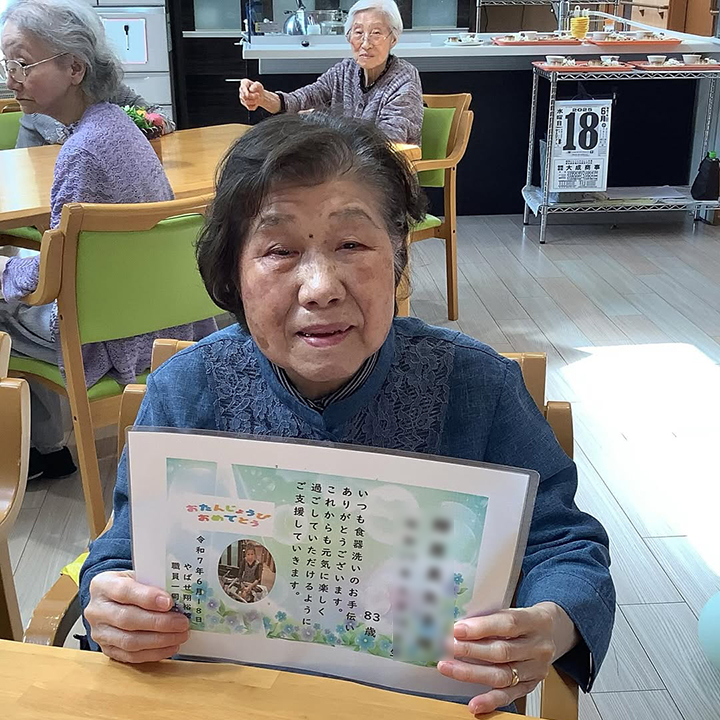 2025
6月
水曜日
18
大成商事
83歳
いつも食器洗いのお手伝い
ありがとうございます。
これからも元気に楽しく
過ごしていただけるように
ご支援していきます。
おたんじょうび
おめでとう
令和7年6月18日
やばせ翔裕
職員一同より